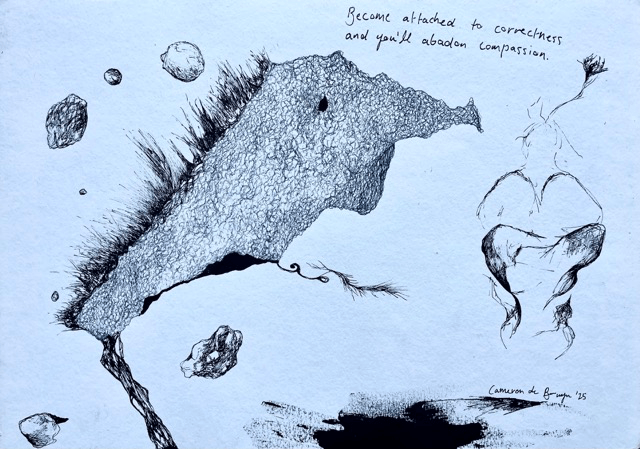 Become attached to correctness
and you'll abadon compassion.
Cameron de Bruyn '25